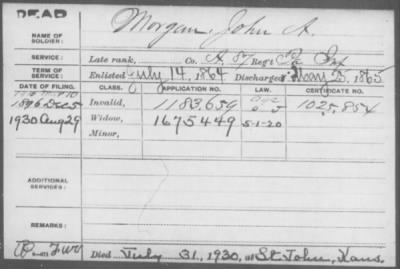 DEAD
NAME OF SOLDIER: Morgan, John A.
SERVICE: Late rank, Co. A, 87 Reg't Pa Inf
TERM OF SERVICE: Enlisted July 14, 1864 Discharged May 25, 1865
DATE OF FILING. CLASS. APPLICATION NO. LAW. CERTIFICATE NO.
1896 Dec 5 Invalid, 1183,659 1025,854
1930 Aug 29 Widow, 1675449 5-1-20
Minor,
ADDITIONAL SERVICES:
REMARKS:
Died July 31, 1930, at St John, Kans.